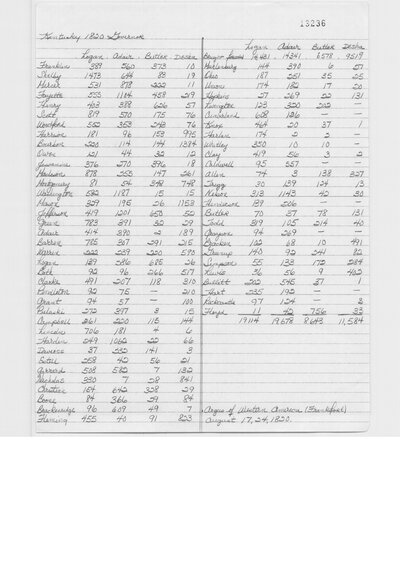 13236
Kentucky 1820 Governor
Logan Adair Butler Desha
Franklin 389 560 373 10
Shelby 1473 644 83 19
Mercer 531 878 11
Fayette 1184 458 29
Henry 403 388 626 57
Scott 819 570 175 76
Woodford 552 353 243 76
Harrison 181 96 153 995
Bourbon 220 114 144 1384
Owen 121 44 32 12
Jessamine 376 270 396 18
Madison 878 147 261
Montgomery 81 54 348 748
Washington 582 1187 15 15
Mason 329 195 26 1153
Jefferson 419 1201 650 52
Green 783 391 32 29
Adair 414 390 2 189
Barren 785 307 291 215
Warren 239 220 590
Logan 129 586 685 26
Bath 92 96 266 517
Clarke 491 207 118 310
Pendleton 92 75 — 210
Grant 94 57 — 100
Pulaski 272 397 3 15
Campbell 261 220 113 144
Lincoln 706 181 4 6
Hardin 249 1062 22 66
Daveiss 37 141 3
Estill 258 42 56 21
Garrard 508 582 7 132
Nicholas 330 7 28 841
Christian 154 642 328 29
Boone 84 366 29 84
Breckinridge 96 609 49 7
Fleming 455 40 91 823
Logan Adair Butler Desha
Brought forward 14431 14341 6578 9519
Muhlenburg 144 390 6 57
Ohio 187 251 35 25
Union 174 182 17 20
Hopkins 27 269 22 131
Livingston 123 320 202 —
Cumberland 608 126 — —
Knox 464 20 37 1
Harlan 174 2 2 —
Whitley 350 10 10 —
Clay 419 56 3 2
Caldwell 95 557 — —
Allen 74 3 138 327
Trigg 30 139 124 13
Monroe 313 1143 42 30
Henderson 139 206 — —
Butler 70 37 78 131
Todd 319 105 214 40
Grayson 94 269 — —
Bracken 102 68 10 491
Greenup 140 92 241 82
Simpson 55 133 172 224
Lewis 36 56 9 462
Bullitt 202 545 37 1
Hart 235 192 — —
Rockcastle 97 124 — 3
Floyd 11 42 756 33
19114 19678 8643 11,584
Argus of Western America (Frankfort)
August 17, 24, 1820.